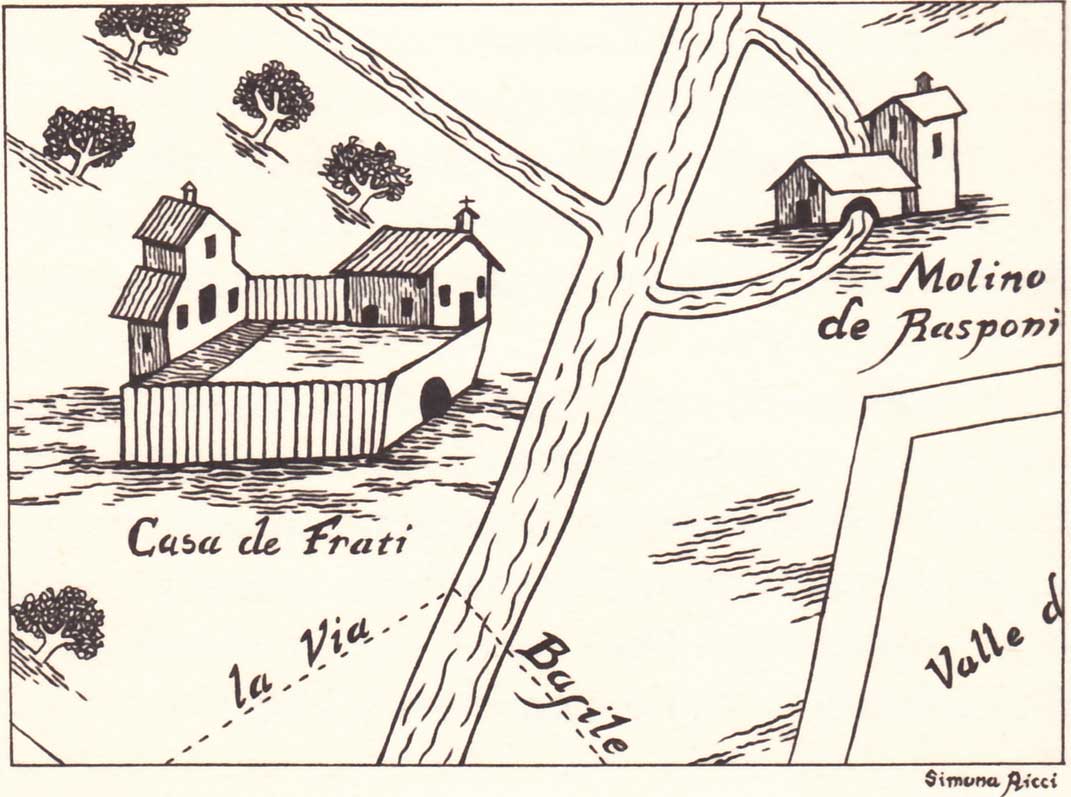 Molino
de Rasponi
Casa de Frati
la Via
Basile
Valle d
Simona Ricci